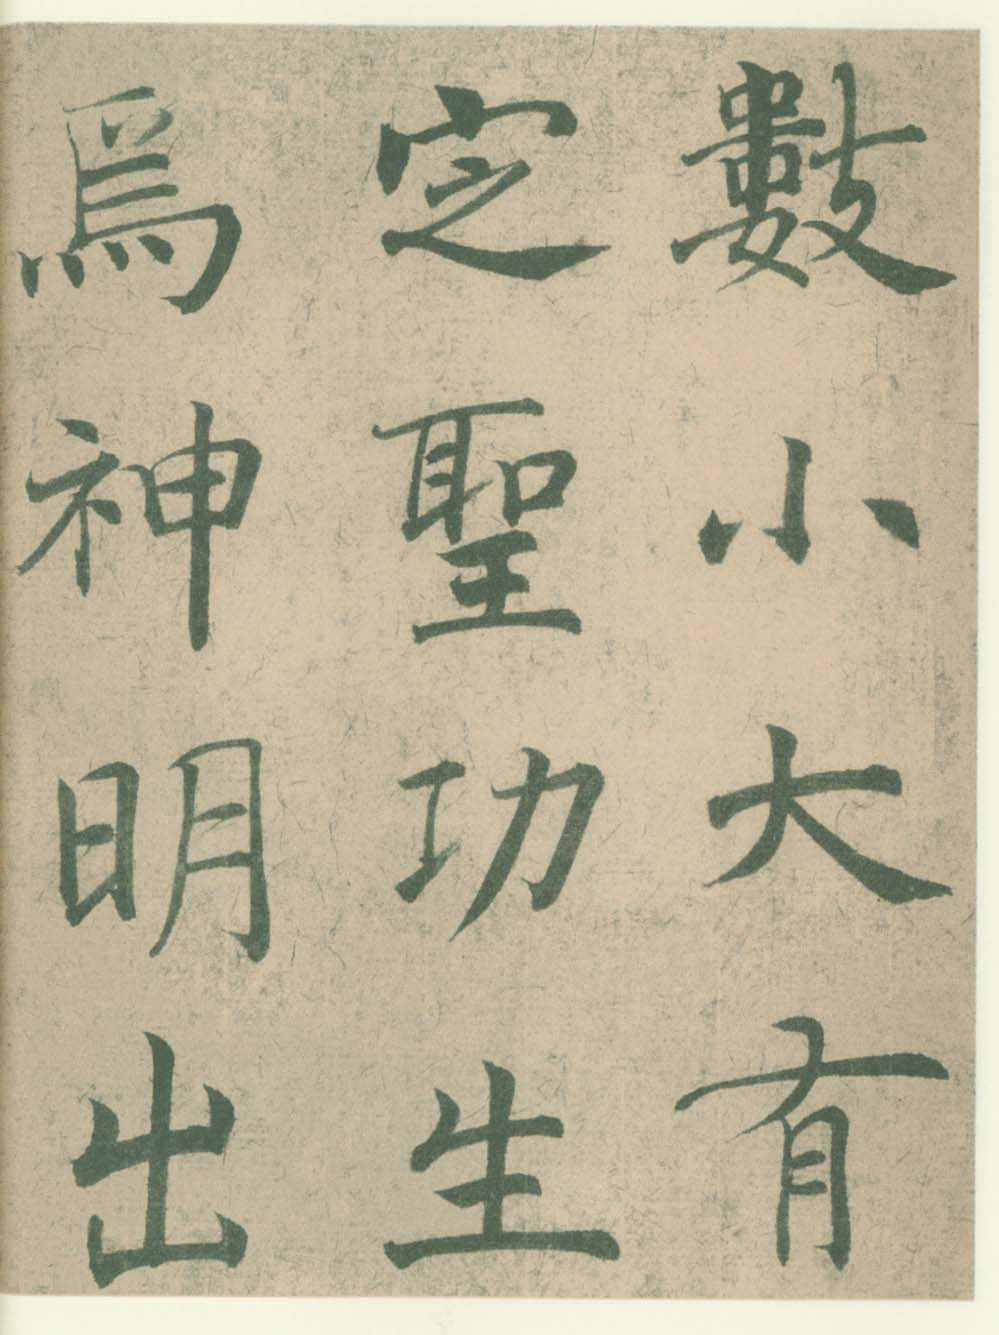 數小大有
定聖功生
爲神明出